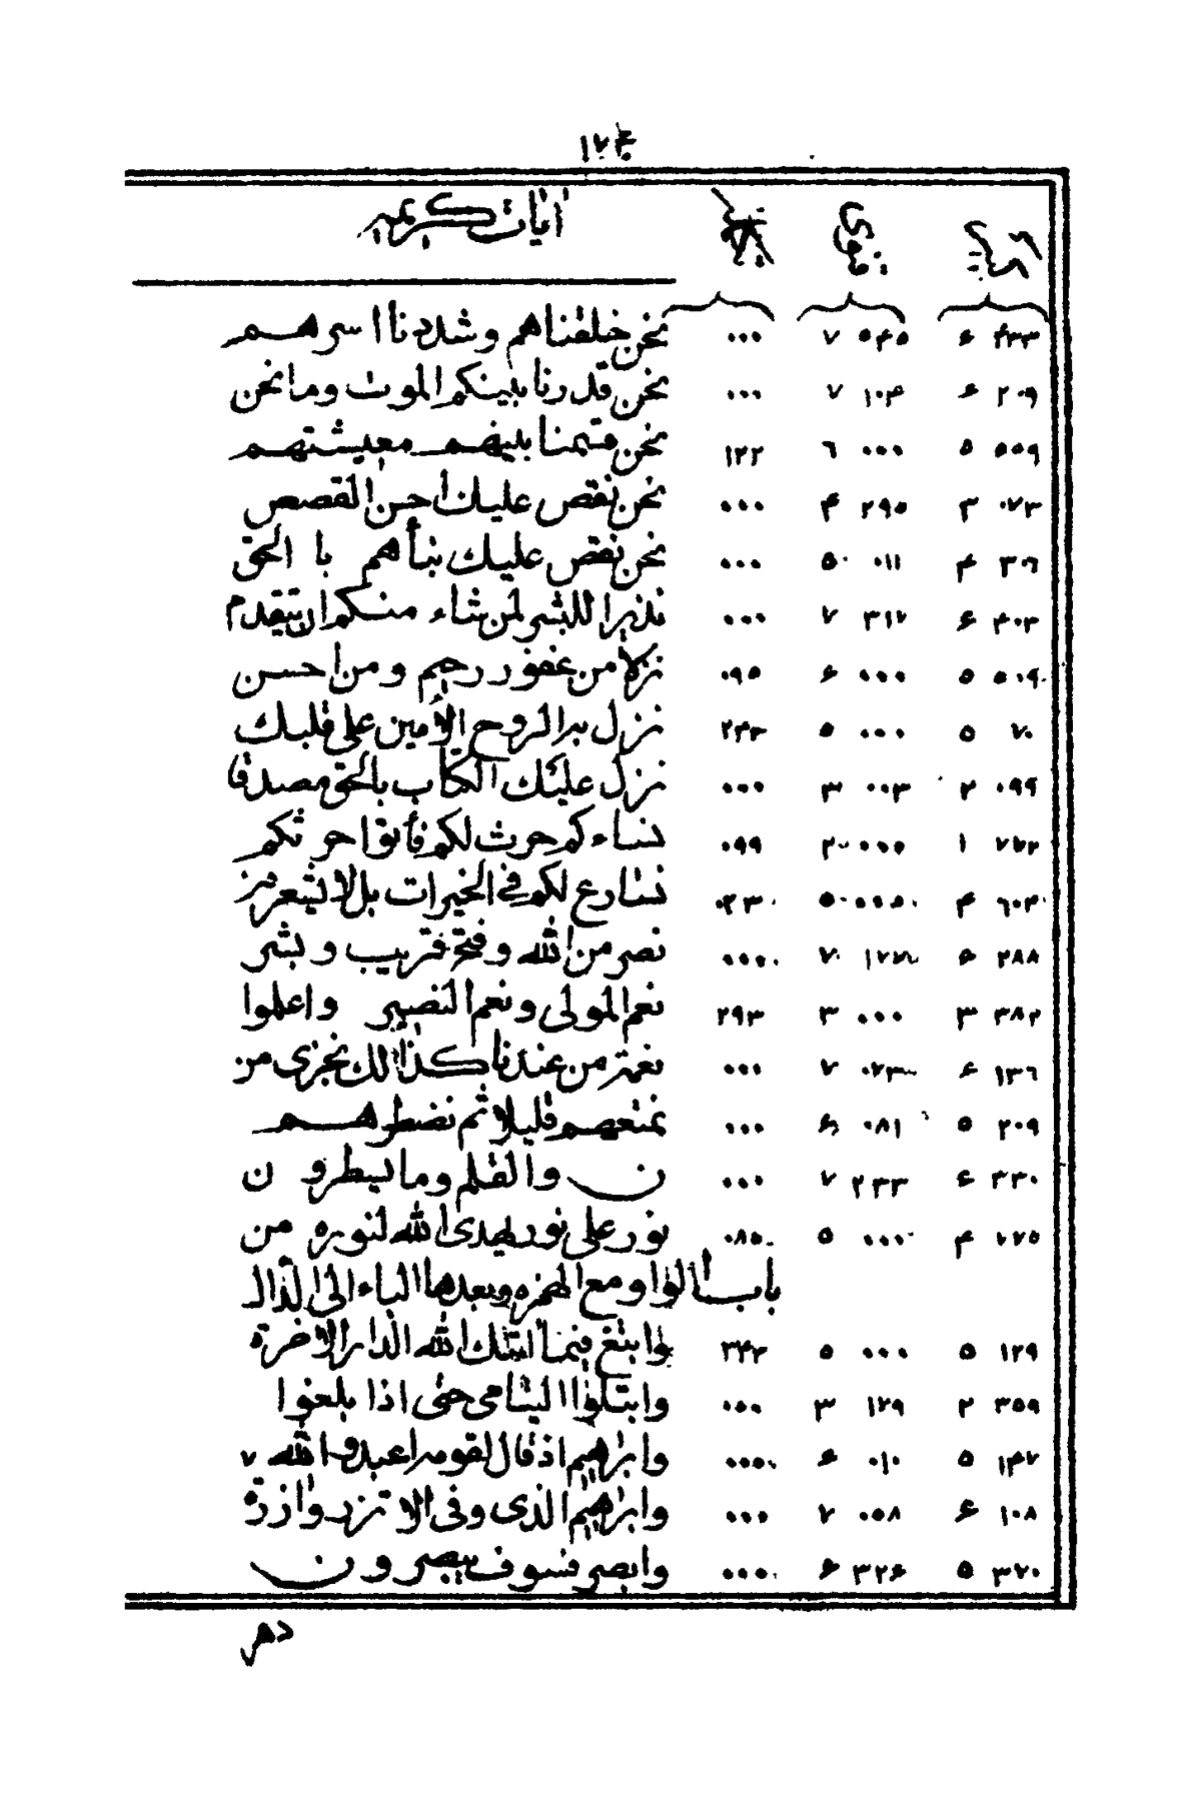 ايات كريمه
۴۳۳ ۶ ۵۴۵ ۷ ۰۰۰ نحن خلقناهم و شددنا اسرهم
۲۰۹ ۶ ۱۰۴ ۷ ۰۰۰ نحن قدرنا بينكم الموت وما نحن
۵۵۹ ۵ ۰۰۰ ٦ ۱۲۲ نحن قسمنا بينهم معيشتهم
۰۷۳ ۳ ۲۹۵ ۴ ۰۰۰ نحن نقص عليك احسن القصص
۳۰٦ ۴ ۰۱۱ ۵ ۰۰۰ نحن نقص عليك نبأهم با الحق
۴۰۳ ۶ ۳۱۷ ۷ ۰۰۰ نذيرا للبشر لمن شاء منكم ان يتقدم
۵۰۹ ۵ ۰۰۰ ۶ ۰۹۵ نزلا من غفور رحيم و من احسن
۷۰ ۵ ۰۰۰ ۵ ۲۴۳ نزل به الروح الأمين على قلبك
۰۹۹ ۲ ۰۰۳ ۳ ۰۰۰ نزل عليك الكتاب بالحق مصدقا
۱ ۰۰۰ ۲ ۰۹۹ نساءكم حرث لكم فأتوا حرثكم
٦۰۴ ۴ ۰۰۰ ۵ نسارع لكم في الخيرات بل لا يشعرون
۲۸۸ ۶ ۷ ۰۰۰ نصر من الله و فتح قريب و بشر
۳۸۲ ۳ ۰۰۰ ۳ ۲۹۳ نعم المولى و نعم النصير واعلموا
۱۳٦ ۶ ۰۷۳ ۷ ۰۰۰ نعمة من عندنا كذالك نجزى من
۲۰۹ ۵ ۰۸۱ ۶ ۰۰۰ نمتعهم قليلا ثم نضطرهم
۳۳۰ ۶ ۲۳۳ ۷ ۰۰۰ ن والقلم وما يسطرون
۴ ۰۰۰ ۵ ۰۸۵ نور على نور يهدى الله لنوره من
باب الواو مع الهمزه وبعدها الباء الى الذال
۱۲۹ ۵ ۰۰۰ ۵ ۳۴۳ وابتغ فيما اتيك الله الدار الاخرة
۳۵۹ ۲ ۱۲۹ ۳ ۰۰۰ وابتلوا اليتامى حتى اذا بلغوا
۱۴۷ ۵ ۰۱۰ ۶ ۰۰۰ وابراهيم اذ قال لقومه اعبدوا الله ۷
۱۰۸ ۶ ۰۵۸ ۷ ۰۰۰ وابراهيم الذى وفى الا تزر وازرة
۳۷۰ ۵ ۳۲۶ ۶ ۰۰۰ وابصر فسوف يبصرون